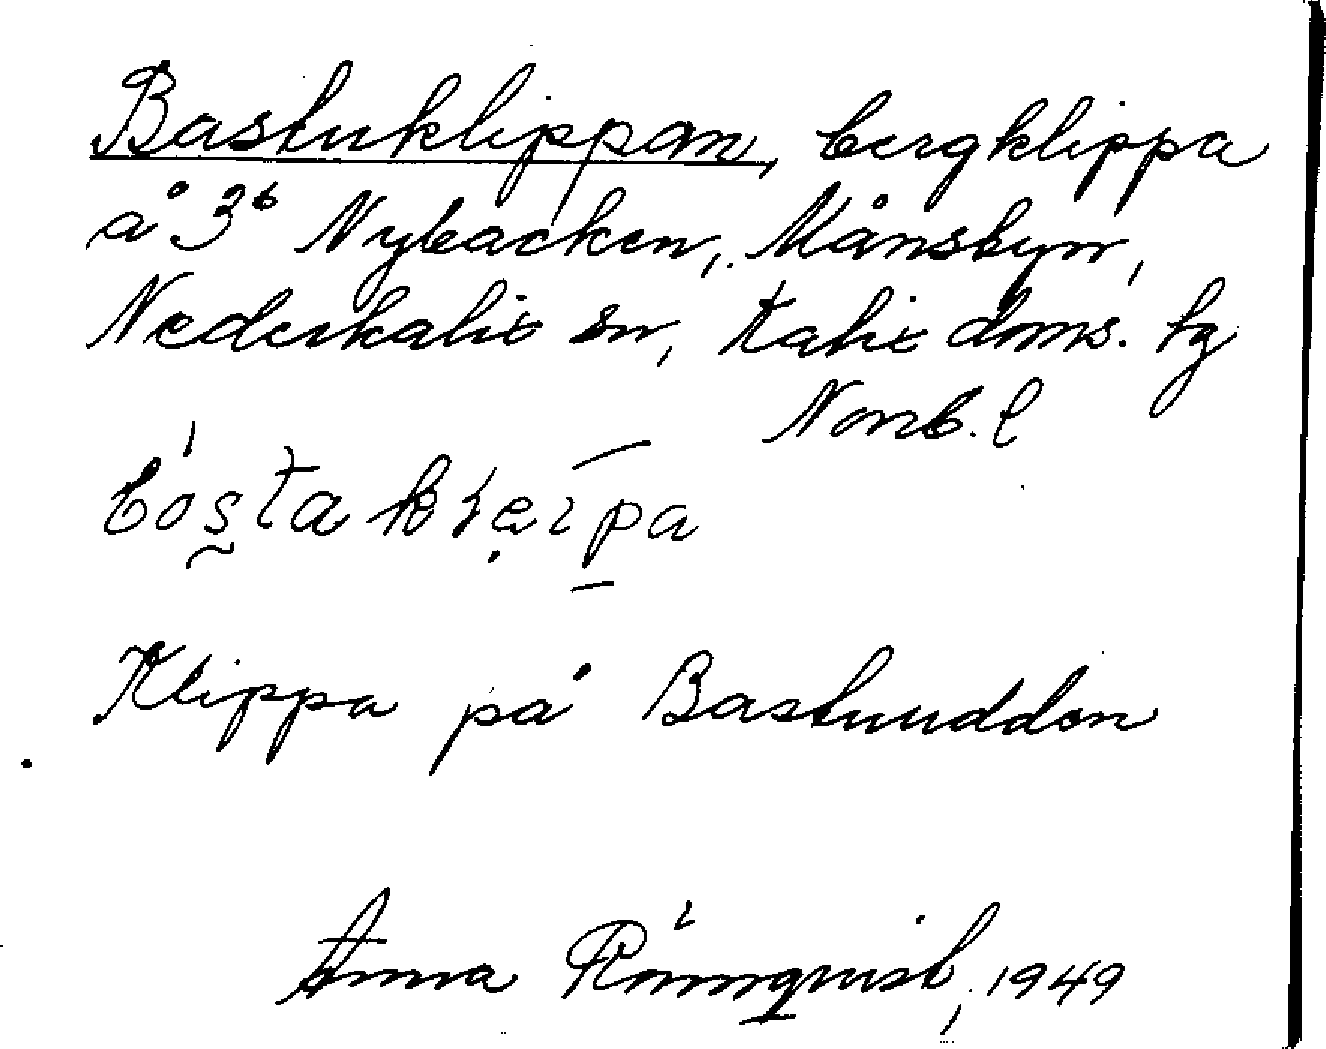 Bastuklippan, bergklippa
å 3⁶ Nybacken, Månsbyn,
Nederkalix sn, Kalix doms. hg
Norrb. l
Klippa på Bastuudden
Anna Rönnqvist, 1949